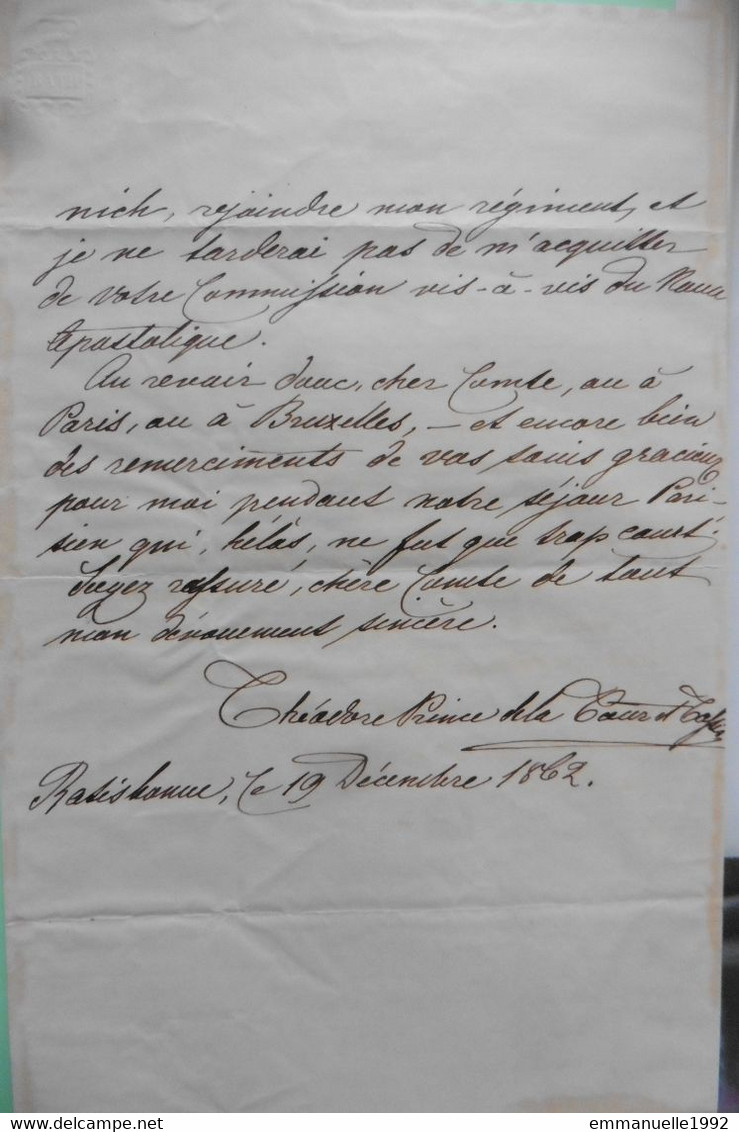 nich, rejoindre mon régiment, et
je ne tarderai pas de m'acquitter
de votre Commission vis-à-vis du
Apostolique.
Au revoir donc, cher Comte, ou à
Paris, ou à Bruxelles, – et encore bien
des remerciments de vos soins gracieux
pour moi pendant notre séjour Pari-
sien qui, hélàs, ne fut que trop court.
Soyez rassuré, chère Comte de tout
mon dévouement sincère.
Théodore Prince de la Tour et Tassis
Ratisbonne, le 19 Décembre 1862.
Delcampe.net
emmanuelle1992